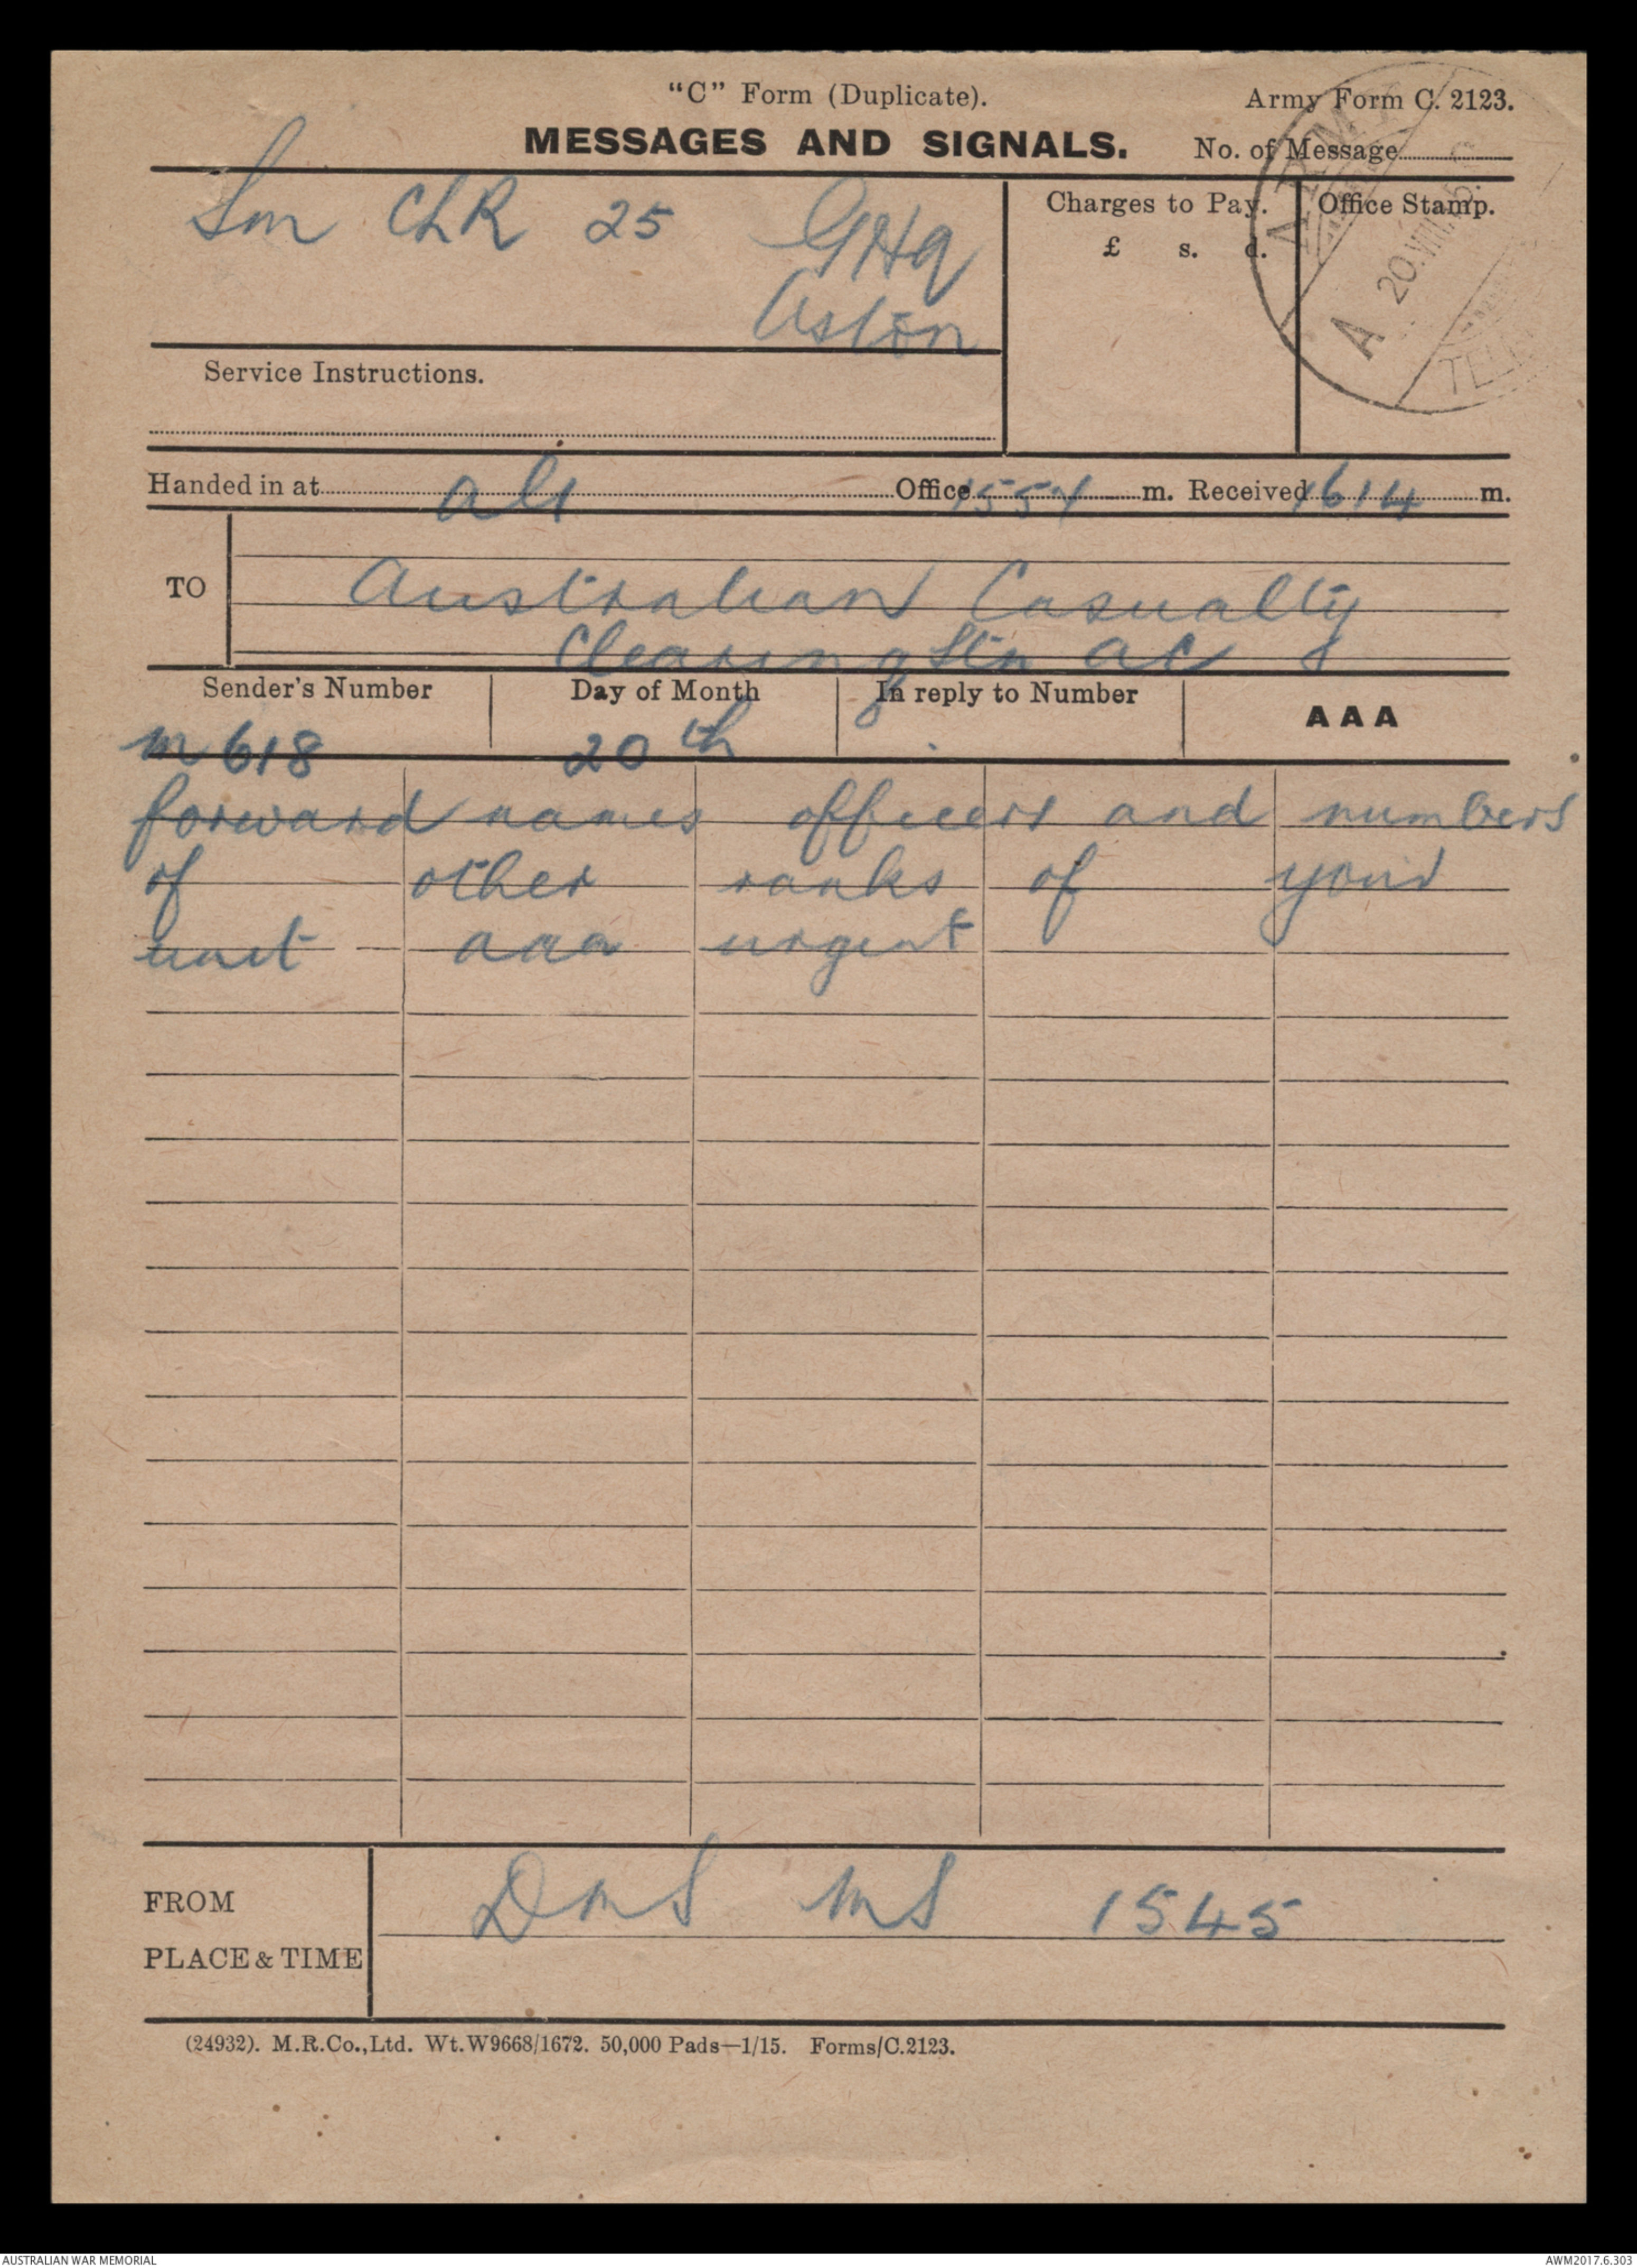 "C" Form (Duplicate). Army Form C. 2123.
MESSAGES AND SIGNALS. No. of Message
Sm ChR 25 GHq
Charges to Pay. Office Stamp.
£ s. d.
ARMY
A 20.VIII.15
TELE
Service Instructions.
Handed in at Office 1554 m. Received 1614 m.
TO Australian Casualty
Clearing Stn ac
Sender's Number Day of Month In reply to Number AAA
m618 20th
forward names officers and numbers
of other ranks of your
unit - aaa urgent
FROM DMS MS 1545
PLACE & TIME
(24932). M.R.Co.,Ltd. Wt.W9668/1672. 50,000 Pads—1/15. Forms/C.2123.
AUSTRALIAN WAR MEMORIAL AWM2017.6.303